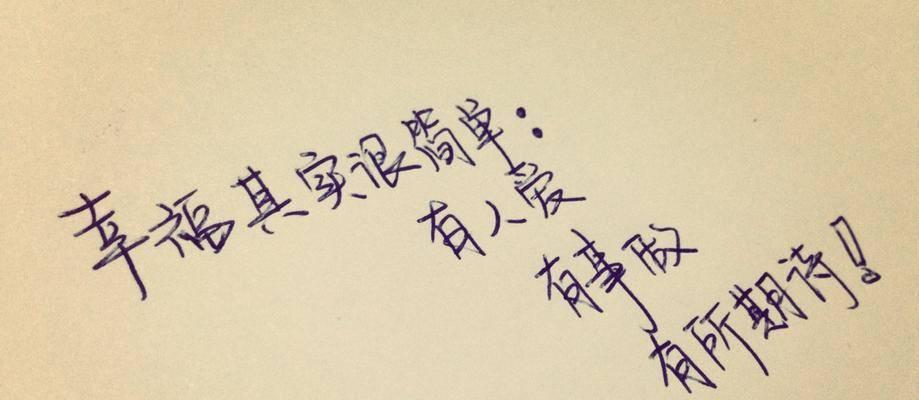 幸福其实很简单:
有人爱
有事做
有所期待!